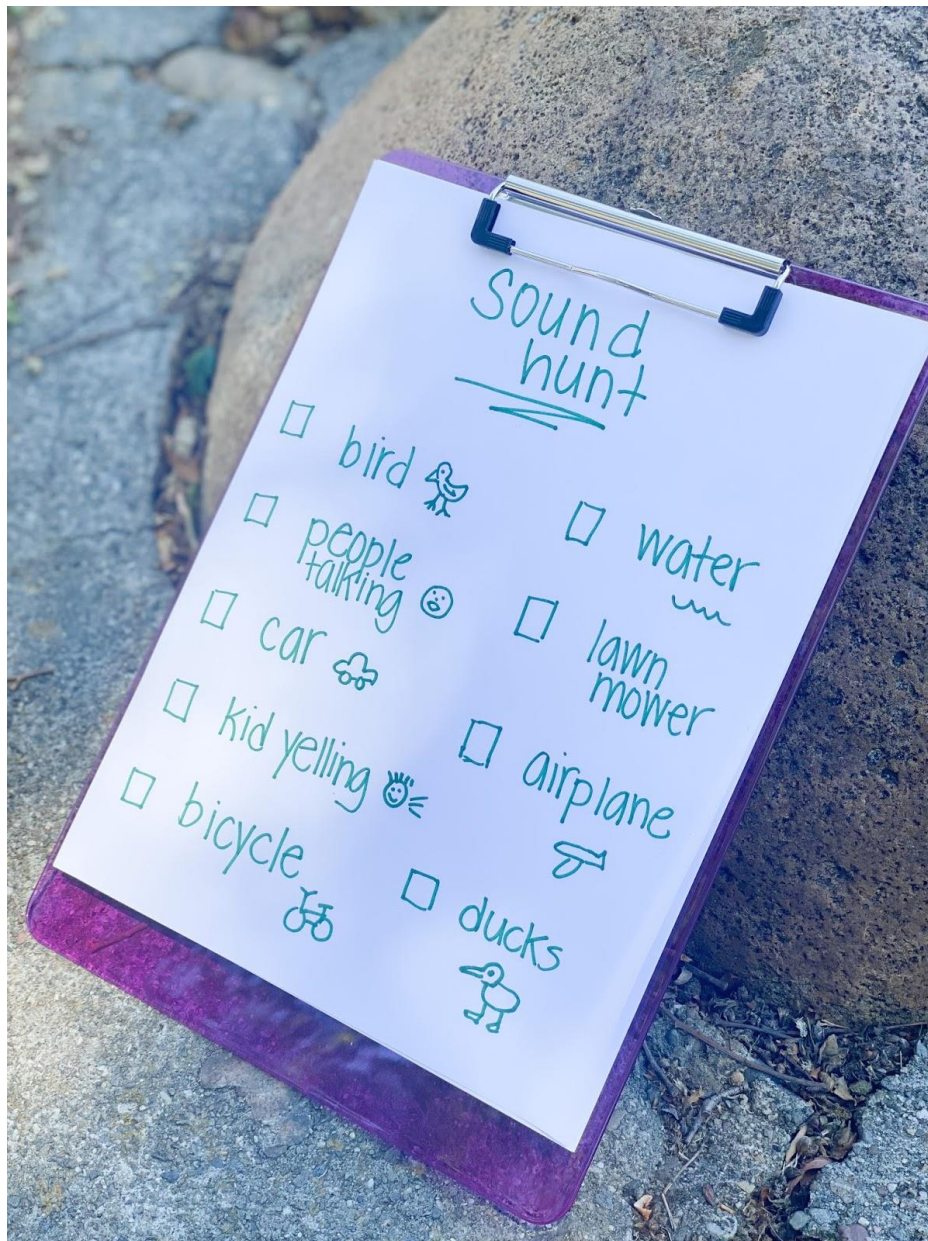 Sound
hunt
bird
people
talking
car
kid yelling
bicycle
water
lawn
mower
airplane
ducks